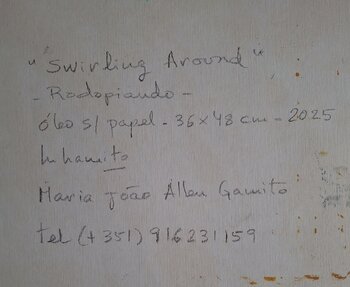 "Swirling Around"
- Rodopiando -
óleo s/ papel - 36 x 48 cm - 2025
Maria João Allen Gamito
tel (+351) 916231159